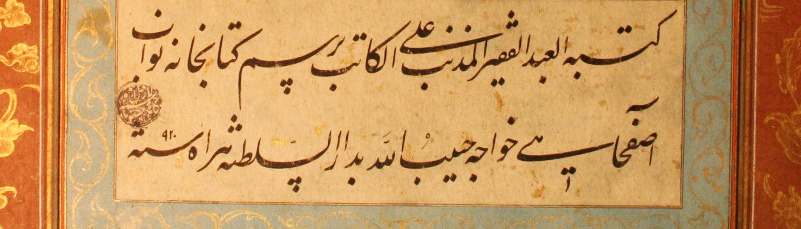 کتبه العبد الفقیر المذنب علی الکاتب برسم کتابخانه نواب
آصفجاهی خواجه حبیب الله بدار السلطنه هراة سنه ۹۲۰